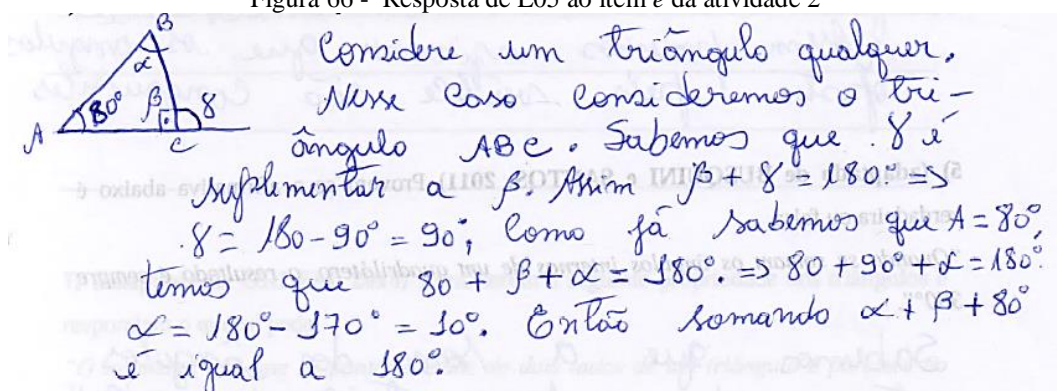 Figura 66 - Resposta de E05 ao item e da atividade 2
B
α
80°
β
γ
A
C
Considere um triângulo qualquer.
Nesse caso consideremos o tri-
ângulo ABC. Sabemos que γ é
suplementar a β. Assim β + γ = 180° =>
γ = 180 - 90° = 90°; Como já sabemos que A = 80°,
temos que 80 + β + α = 180° => 80 + 90° + α = 180°
α = 180° - 170° = 10°. Então somando α + β + 80°
é igual a 180°.